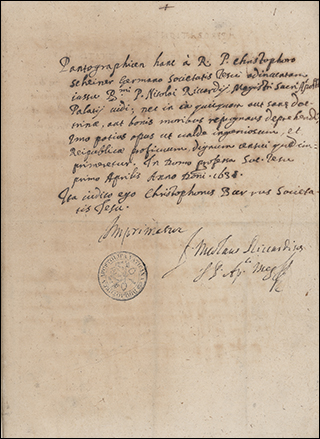 +
Pantographicen hanc à R. P. Christophoro
Scheiner Germano Societatis Iesu adinuentam
iussu R.mi P. Nicolai Riccardii Magistri Sacri Apost.
Palatij uidi; nec in ea quicquam aut sanæ doc-
trinæ, aut bonis moribus repugnans deprehendi
Imo potius opus ut ualde ingeniosum, et
Reipublicæ proficuum, dignum censui quod im-
primeretur. In Domo professa Soc. Iesu
primo Aprilis Anno Dõni 1631.
Ita iudico ego Christophorus Societa-
tis Iesu.
Imprimatur
Nicolaus Riccardius
S. P. Ap. Mag.